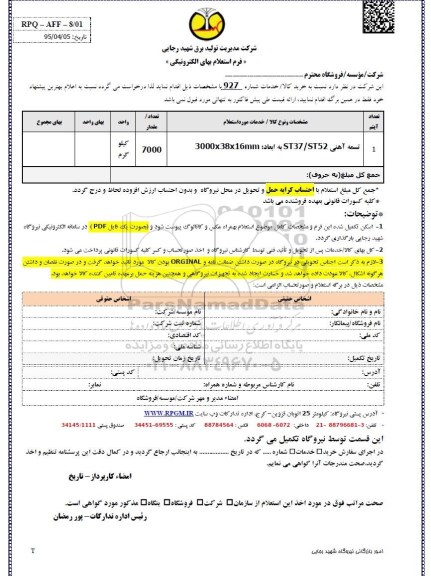 RPQ – AFF – 8/01
تاریخ: 95/04/05
شرکت مدیریت تولید برق شهید رجایی
« فرم استعلام بهای الکترونیکی »
شرکت/مؤسسه/فروشگاه محترم
این شرکت در نظر دارد نسبت به خرید کالا/خدمات شماره 927 با مشخصات ذیل اقدام نماید لذا درخواست می گردد نسبت به اعلام بهترین پیشنهاد
خود فقط در همین برگه اقدام نمایید، ارائه قیمت طی پیش فاکتور به تنهایی مورد قبول نمی باشد
تعداد آیتم
مشخصات ونوع کالا / خدمات مورداستعلام
تعداد / مقدار
واحد
بهای واحد
بهای مجموع
1
تسمه آهنی ST37/ST52 به ابعاد: 3000x38x16mm
7000
کیلو گرم
جمع کل مبلغ(به حروف):
*جمع کل مبلغ استعلام با احتساب کرایه حمل و تحویل در محل نیروگاه و بدون احتساب ارزش افزوده لحاظ و درج گردد.
*کلیه کسورات قانونی بعهده فروشنده می باشد
*توضیحات:
1- اسکن تکمیل شده این فرم و مشخصات کامل موضوع استعلام بهمراه عکس و کاتالوگ پیوست شود و (بصورت یک فایل PDF ) در سامانه الکترونیکی نیروگاه
شهید رجایی بارگذاری گردد.
2- کل بهای کالا/خدمات پس از تحویل و تأیید فنی توسط کارشناس نیروگاه و اخذ صورتحساب و کسر کلیه کسورات قانونی پرداخت می شود.
3-لازم به ذکر است اجناس تحویلی در نیروگاه در صورت داشتن ضمانت نامه و ORGINAL بودن کالا مورد تائید خواهد گرفت و در صورت نقصان و داشتن
هرگونه اشکال، کالا عودت داده خواهد شد و خسارت ایجاد شده به تجهیزات نیروگاهی و همچنین هزینه حمل برعهده تامین کننده کالا خواهد بود.
مشخصات ذیل در برگه استعلام و صورتحساب الزامی است:
اشخاص حقیقی
اشخاص حقوقی
نام و نام خانوادگی:
نام مؤسسه/شرکت:
نام فروشگاه/پیمانکار:
شماره ثبت شرکت:
کد ملی:
کد اقتصادی:
شناسه ملی:
تاریخ تکمیل:
تاریخ زمان تحویل:
آدرس:
کد پستی:
تلفن:
نام کارشناس مربوطه و شماره همراه:
نمابر:
امضاء مدیر و مهر شرکت/موسسه/فروشگاه
ParsNamadData
پایگاه اطلاع رسانی مناقصه و مزایده
۰۲۱-۸۸۳۴۹۶۷۰-۵
- آدرس پستی نیروگاه: کیلومتر 25 اتوبان قزوین- کرج، اداره تدارکات وب سایت WWW.RPGM.IR
- تلفن: 3-88796681 -21 داخلی: 6072- 6068 فاکس: 88784564 کد پستی: 69555-34451 صندوق پستی 34145/1111
این قسمت توسط نیروگاه تکمیل می گردد.
در اجرای سفارش خرید خدمات شماره ..... که در تاریخ ................ به اینجانب ارجاع گردید و در کمال دقت این پرسشنامه تنظیم و اخذ
گردید،صحت مندرجات آنرا گواهی می نمایم.
امضاء کارپرداز – تاریخ
صحت مراتب فوق در مورد اخذ این استعلام از سازمان شرکت فروشگاه بنگاه مذکور مورد گواهی است.
رئیس اداره تدارکات- پور رمضان
امور بازرگانی نیروگاه شهید رجایی
T